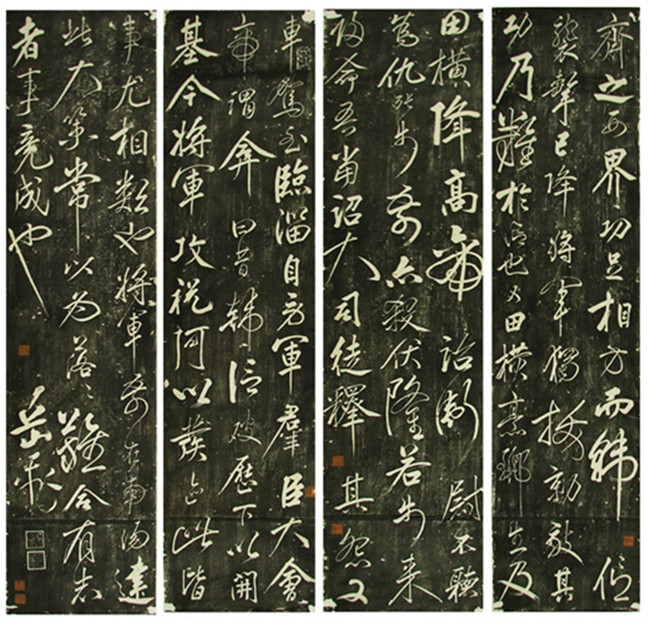 齊之西界功足相方而韓信
襲擊已降將軍獨拔勍敵其
功乃難於信也又田橫烹酈生及
田橫降高帝詔衛尉不聽
為仇張步前亦殺伏隆若步來
歸命吾當詔大司徒釋其怨又
車駕至臨淄自勞軍羣臣大會
帝謂弇曰昔韓信破歷下以開
基今將軍攻祝阿以發跡此皆
事尤相類也將軍前在南陽建
此大策常以為落落難合有志
者事竟成也
岳飛